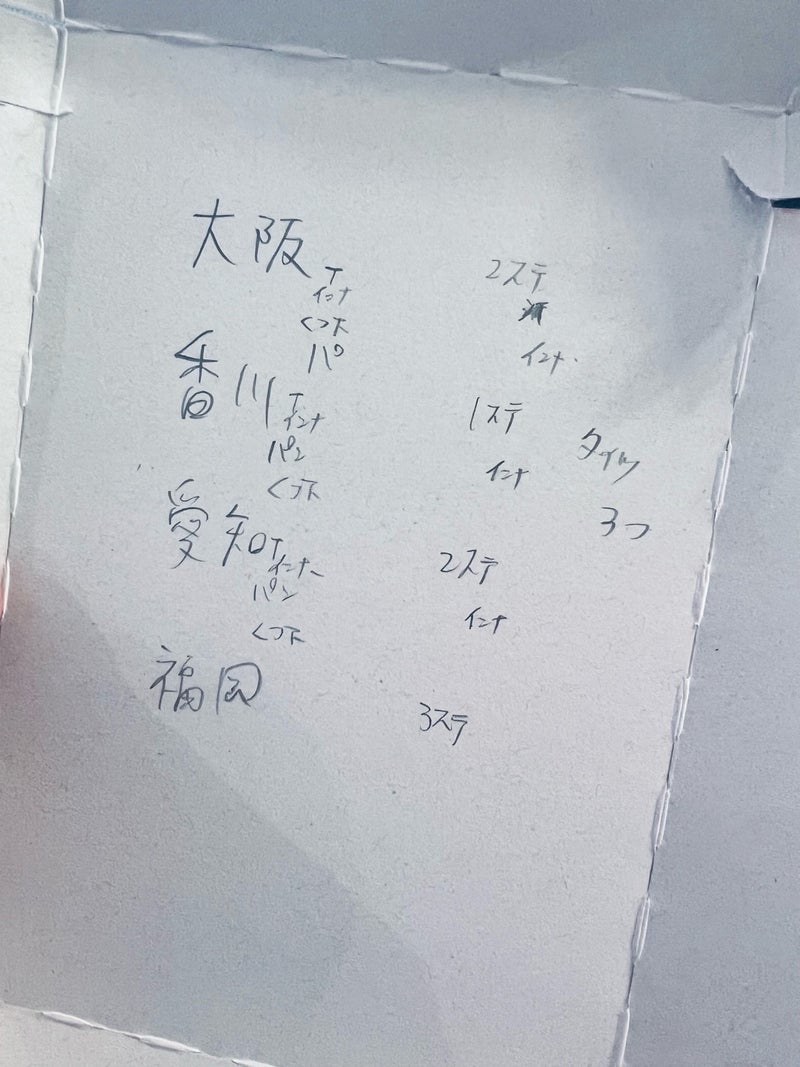 大阪 T 2ステ
インナ
くつ下
パ インナ
香川 T 1ステ
インナ タイツ
パン インナ
くつ下 3つ
愛知 T 2ステ
インナー
パン インナ
くつ下
福岡 3ステ